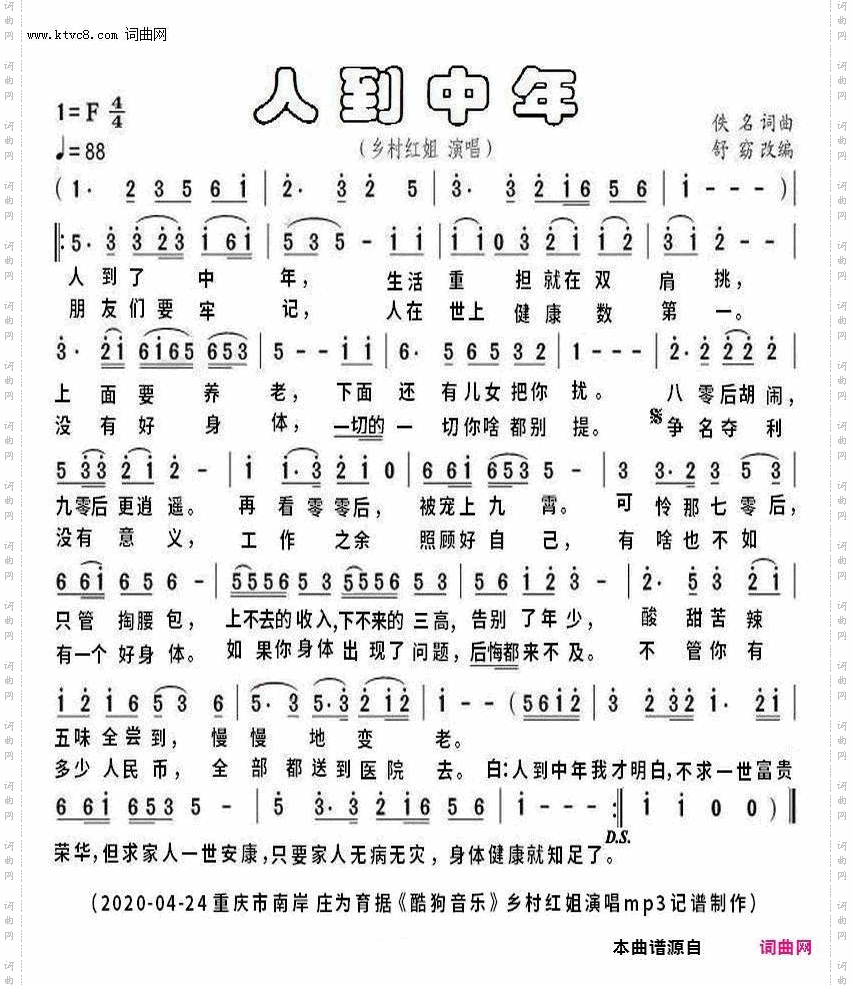 www.ktvc8.com 词曲网
人到中年
1=F 4/4
佚名词曲
♩=88
(乡村红姐 演唱)
舒窈改编
(1· 2 3 5 6 i | 2· 3 2 5 | 3· 3 2 1 6 5 6 | i - - - )|
5· 3 3 2 3 i 6 i | 5 3 5 - i i | i i 0 3 2 i i 2 | 3 i 2 - - |
人到了中年，生活重担就在双肩挑，
朋友们要牢记，人在世上健康数第一。
3· 2 i 6 i 6 5 6 5 3 | 5 - - i i | 6· 5 6 5 3 2 | 1 - - - | 2· 2 2 2 2 |
上面要养老，下面还有儿女把你扰。八零后胡闹，
没有好身体，一切的一切你啥都别提。争名夺利
5 3 3 2 i 2 - | i i· 3 2 i 0 | 6 6 i 6 5 3 5 - | 3 3· 2 3 5 3 |
九零后更逍遥。再看零零后，被宠上九霄。可怜那七零后，
没有意义，工作之余照顾好自己，有啥也不如
6 6 i 6 5 6 - | 5 5 5 6 5 3 5 5 5 6 5 3 | 5 6 i 2 3 - | 2· 5 3 2 i |
只管掏腰包，上不去的收入，下不来的三高，告别了年少，酸甜苦辣
有一个好身体。如果你身体出现了问题，后悔都来不及。不管你有
i 2 i 6 5 3 6 | 5· 3 5 2 i 2 | i - - (5 6 i 2 | 3 2 3 2 i· 2 i |
五味全尝到，慢慢地变老。
多少人民币，全部都送到医院去。白：人到中年我才明白，不求一世富贵
6 6 i 6 5 3 5 - | 5 3· 3 2 1 6 5 6 | 1 - - - :| i i 0 0 )|
D.S.
荣华，但求家人一世安康，只要家人无病无灾，身体健康就知足了。
(2020-04-24重庆市南岸 庄为育据《酷狗音乐》乡村红姐演唱mp3记谱制作)
本曲谱源自 词曲网